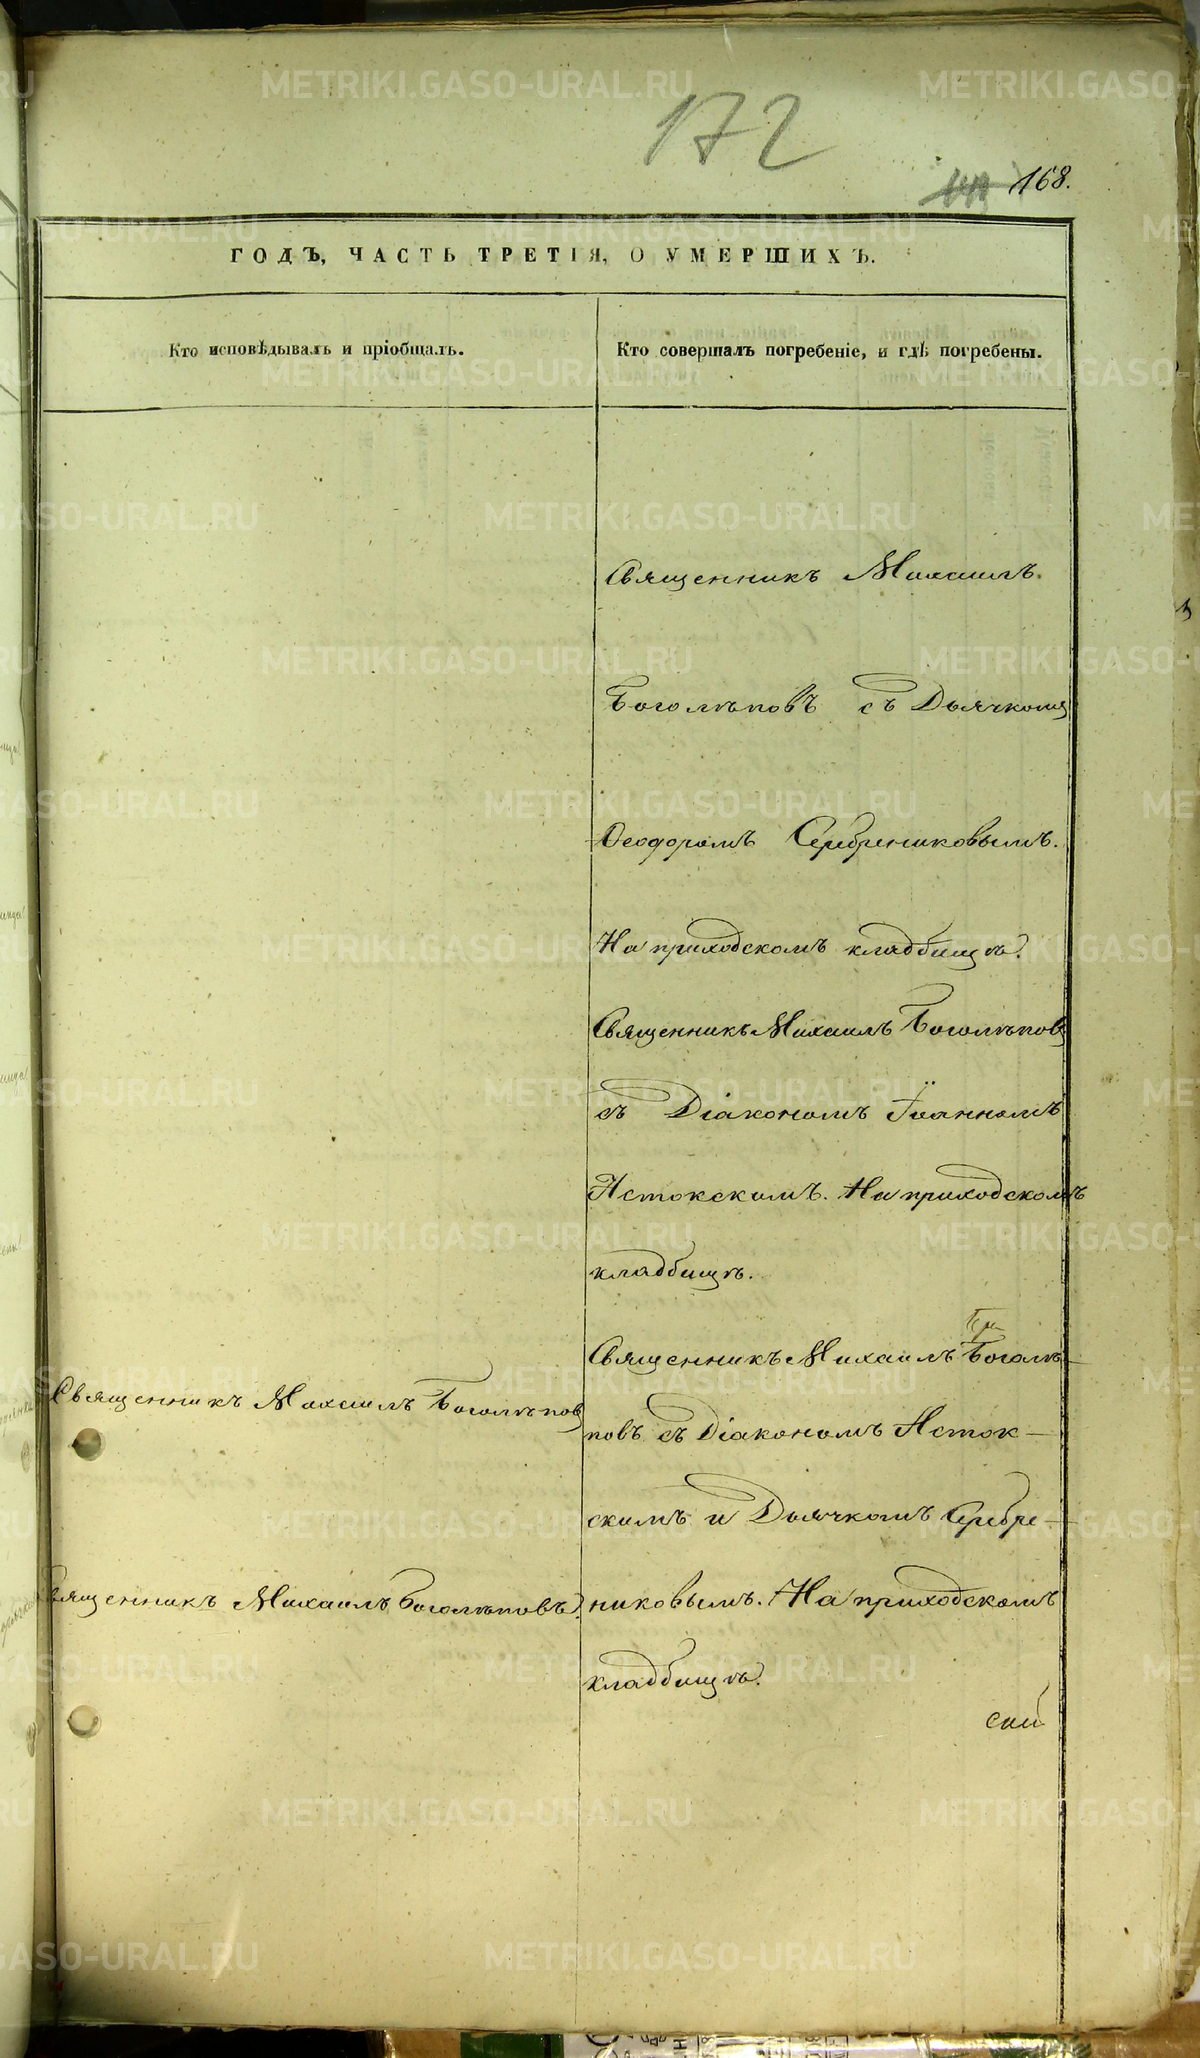 172
168.
ГОДЪ, ЧАСТЬ ТРЕТІЯ, О УМЕРШИХЪ.
Кто исповѣдывалъ и пріобщалъ.
Кто совершалъ погребеніе, и гдѣ погребены.
Священникъ Михаилъ
Боголѣповъ съ Дьячкомъ
Ѳеодоромъ Серебрениковымъ.
На приходскомъ кладбищѣ.
Священникъ Михаилъ Боголѣповъ
съ Діакономъ Іоанномъ
Истокскимъ. На приходскомъ
кладбищѣ.
Священникъ Михаилъ Боголѣ-
повъ съ Діакономъ Исток-
скимъ и Дьячкомъ Серебре-
никовымъ. На приходскомъ
кладбищѣ.
Священникъ Михаилъ Боголѣповъ
Священникъ Михаилъ Боголѣповъ.
METRIKI.GASO-URAL.RU